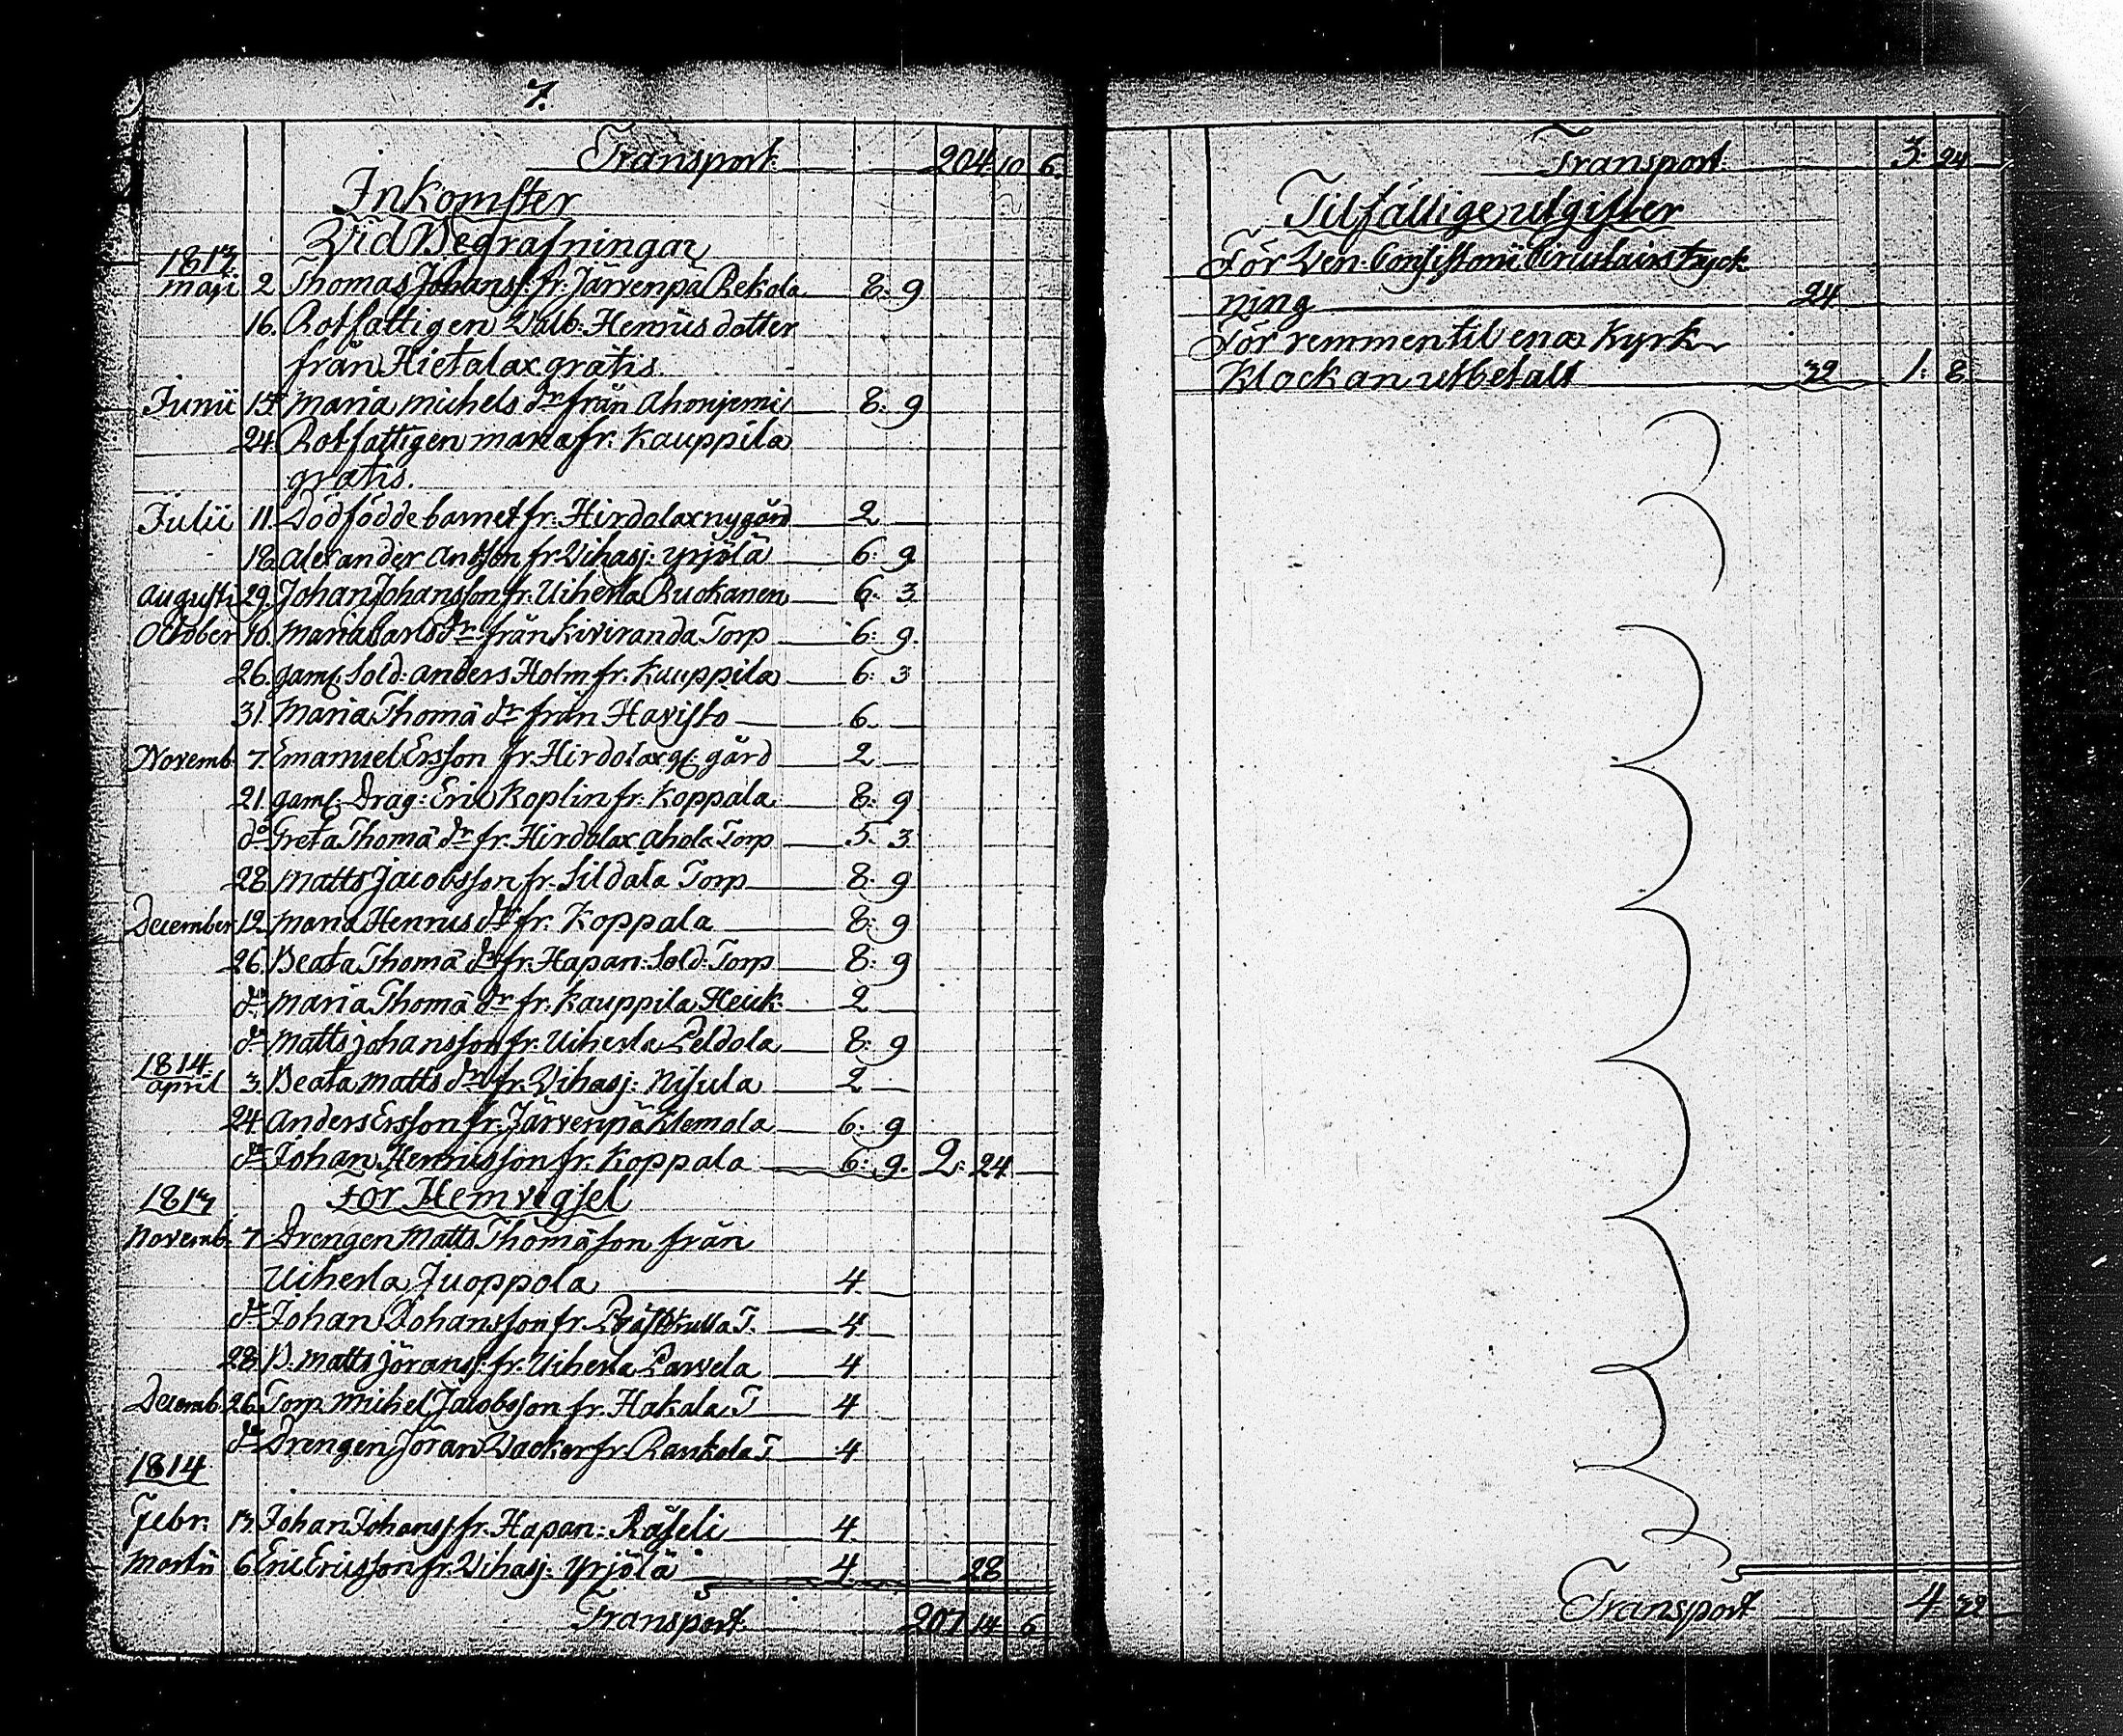 7.
Transport. 204. 10 6.
Inkomster
Vid Begrafningar
1813
maji 2 Thomas Johanss: fr: Järvenpä Rekola 8: 9
16. Rotfattigen Walb: Henrics dotter
från Hietalax gratis.
Junii 13 Maria Michels dr från Ahonjemi 8: 9
24. Rotfattigen Maria fr: Kauppila
gratis.
Julii 11. Dödfödde barnet fr. Hirdolax nygård 2
18. Alexander Anderson fr Vihasj: Yrjölä 6: 9
Augusti 29. Johan Johansson fr. Uiherla Ruokanen 6: 3
October 10. Maria Carls dr från Kiviranda Torp 6: 9.
26. gaml. Sold: Anders Holm fr. Kauppila 6: 3
31. Maria Thomä dr från Havisto 6
Novemb. 7. Emanuel Ersson fr. Hirdolax gl: gård 2
21. gaml. Drag: Eric Koplin fr: Koppala 8: 9
do Greta Thomä dr fr. Hirdolax Ahola Torp 5. 3
28. Matts Jacobsson fr. Sildala Torp 8: 9
December 12. Maria Henrics dr fr. Koppala 8: 9
26. Beata Thomä dr fr. Hapan: Sold: Torp 8: 9
do Maria Thomä dr fr. Kauppila Heick. 2
do Matts Johansson fr. Uiherla Peldola 8: 9
1814.
April 3. Beata Matts dr fr. Vihasj: Nisula 2
24 Anders Ersson fr. Järvenpä Klemola 6. 9
do Johan Henricsson fr. Koppala 6: 9. 2: 24
1813 För Hemvigsel
Novemb. 7. Drengen Matts Thomäson från
Uiherla Juoppola 4.
do Johan Johansson fr. Prästkulla T. 4
28. B. Matts Jörans: fr. Uiherla Parvela 4
Decemb. 26. Torp. Michel Jacobsson fr. Hakala T 4
do Drengen Jöran Wacker fr. Rankola T 4
1814
Febr. 13. Johan Johanss fr. Hapan: Räseli 4.
Martii 6 Eric Ericsson fr. Vihasj: Yrjölä 4. 28
Transport. 207 14 6
Transport. 3. 24
Tilfällige utgifter
För Ven. Consistorii Circulairs tryck
ning 24
För remmen til ena kyrk
klockan utbetalt 32 1. 8
Transport 4 32